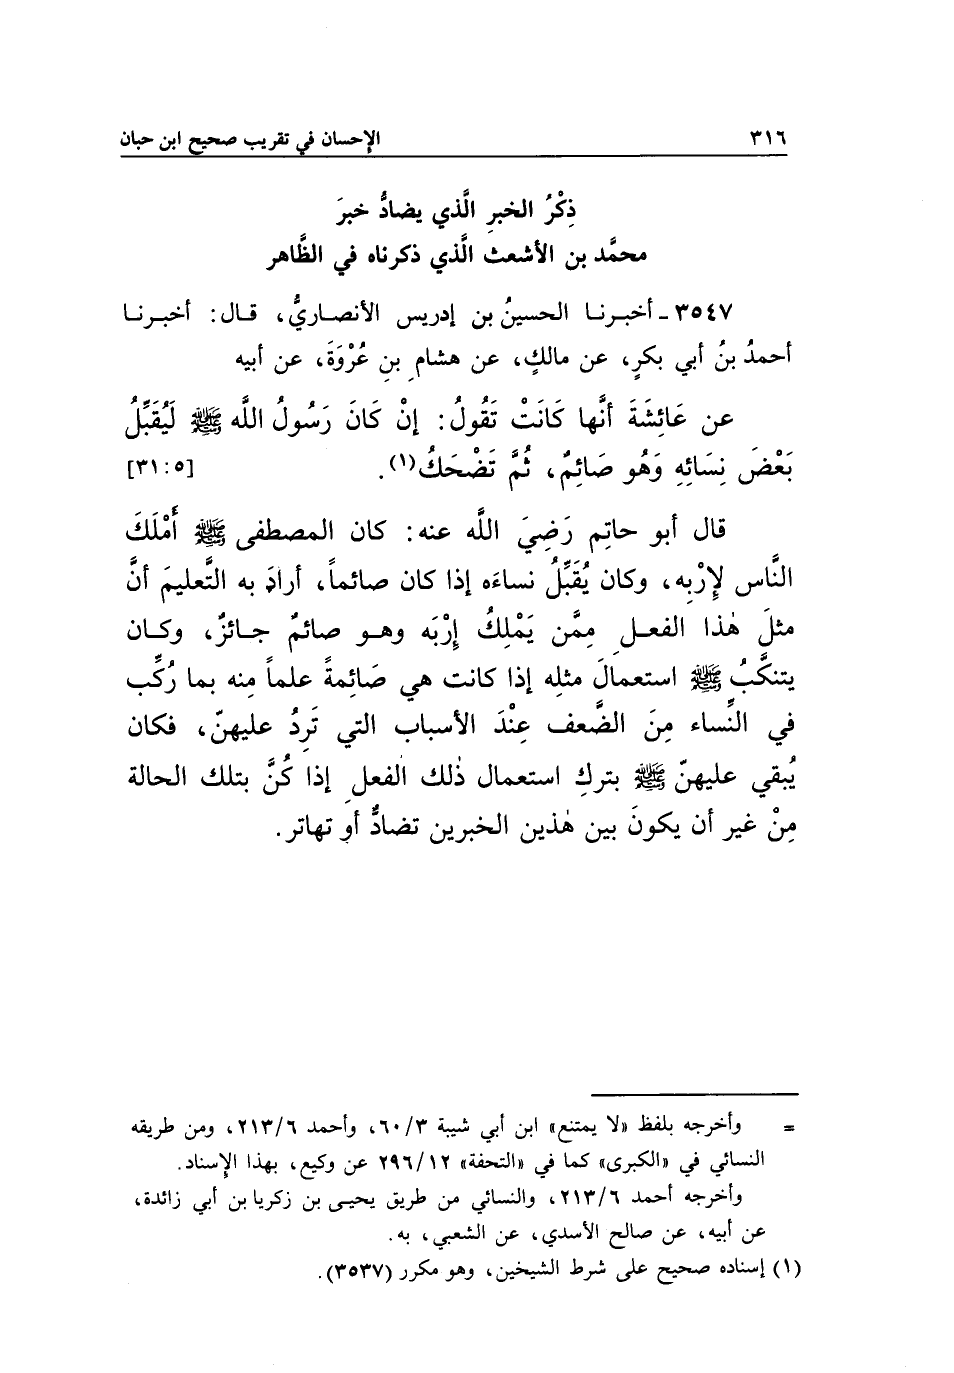 ٣١٦ الإحسان في تقريب صحيح ابن حبان
ذِكْرُ الخبرِ الَّذي يضادُّ خبرَ
محمَّد بن الأشعث الَّذي ذكرناه في الظَّاهر
٣٥٤٧ ـ أخبرنا الحسينُ بن إدريس الأنصاريُّ، قال: أخبرنا
أحمدُ بنُ أبي بكرٍ، عن مالكٍ، عن هشامِ بنِ عُرْوَةَ، عن أبيه
عن عَائِشَةَ أنَّها كَانَتْ تَقُولُ: إنْ كَانَ رَسُولُ اللَّه ﷺ لَيُقَبِّلُ
بَعْضَ نِسَائِهِ وَهُو صَائِمٌ، ثُمَّ تَضْحَكُ(١). [٥: ٣١]
قال أبو حاتِم رَضِيَ اللَّه عنه: كان المصطفى ﷺ أَمْلَكَ
النَّاس لإِرْبِه، وكان يُقَبِّلُ نساءَه إذا كان صائماً، أرادَ به التَّعليمَ أنَّ
مثلَ هٰذا الفعلِ مِمَّن يَمْلِكُ إِرْبَه وهو صائمٌ جائزٌ، وكان
يتنكَّبُ ﷺ استعمالَ مثلِه إذا كانت هي صَائِمةً علماً مِنه بما رُكِّب
في النِّساء مِنَ الضَّعف عِنْدَ الأسباب التي تَرِدُ عليهنّ، فكان
يُبقي عليهنّ ﷺ بتركِ استعمال ذٰلك الفعلِ إذا كُنَّ بتلك الحالة
مِنْ غير أن يكونَ بين هٰذين الخبرين تضادٌّ أو تهاتر.
= وأخرجه بلفظ «لا يمتنع» ابن أبي شيبة ٦٠/٣، وأحمد ٢١٣/٦، ومن طريقه
النسائي في «الكبرى» كما في «التحفة» ٢٩٦/١٢ عن وكيع، بهذا الإسناد.
وأخرجه أحمد ٢١٣/٦، والنسائي من طريق يحيى بن زكريا بن أبي زائدة،
عن أبيه، عن صالح الأسدي، عن الشعبي، به.
(١) إسناده صحيح على شرط الشيخين، وهو مكرر (٣٥٣٧).